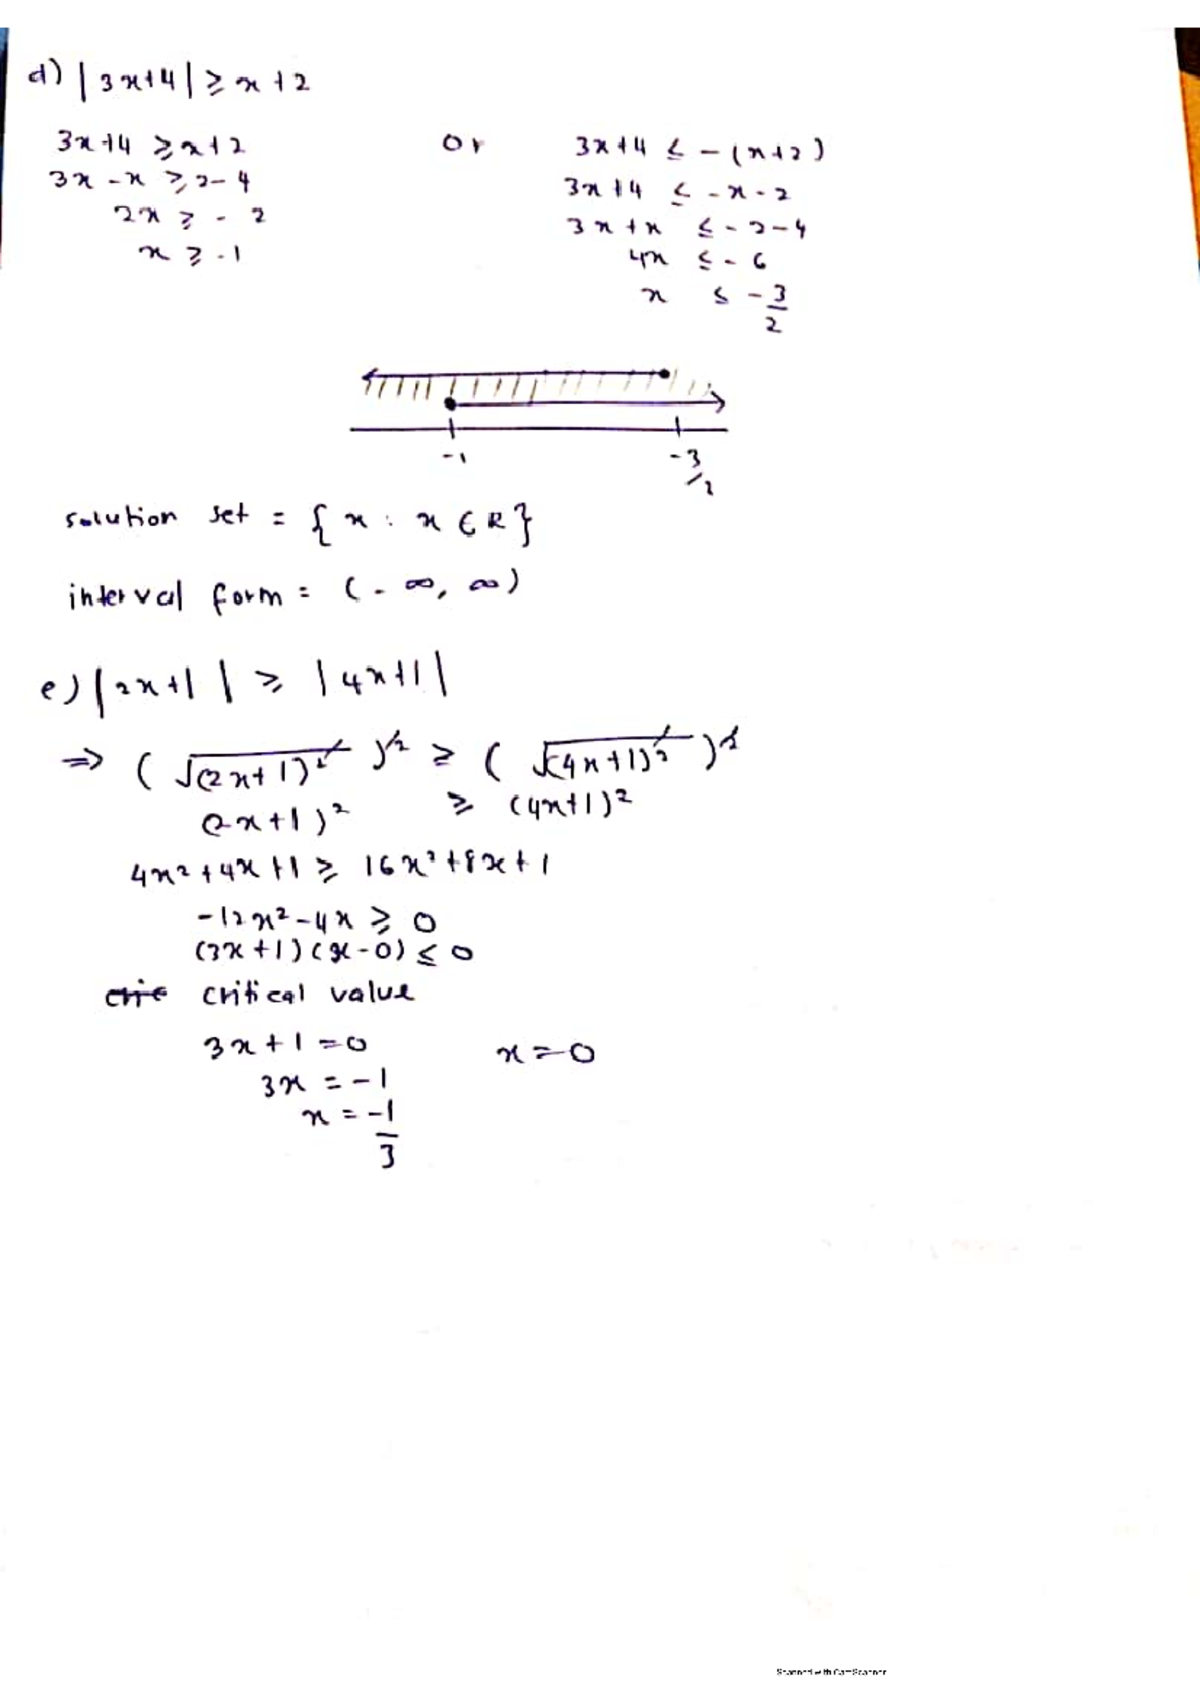 d) |3x+4| ≥ x+2
3x+4 ≥ x+2 or 3x+4 ≤ -(x+2)
3x-x ≥ 2-4 3x+4 ≤ -x-2
2x ≥ -2 3x+x ≤ -2-4
x ≥ -1 4x ≤ -6
x ≤ -3/2
-1 -3/2
solution set = {x : x ∈ R}
interval form = (-∞, ∞)
e) |2x+1| ≥ |4x+1|
⇒ (√(2x+1)²)² ≥ (√(4x+1)²)²
(2x+1)² ≥ (4x+1)²
4x²+4x+1 ≥ 16x²+8x+1
-12x²-4x ≥ 0
(3x+1)(x-0) ≤ 0
critical value
3x+1=0 x=0
3x = -1
x = -1/3
Scanned with CamScanner